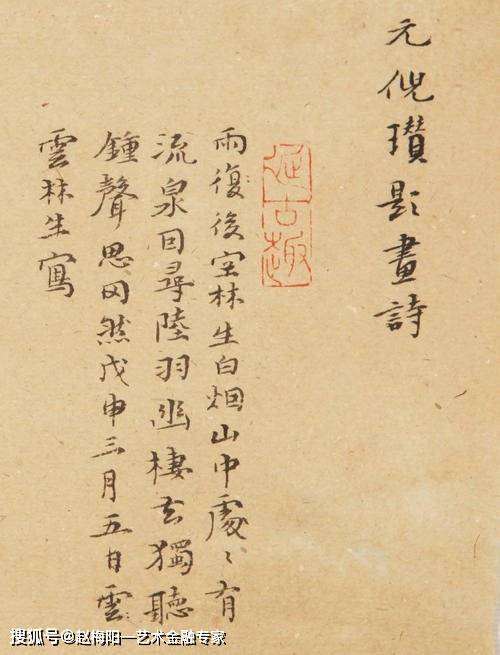 元倪瓚題畫詩
古趣
雨復後空林生白烟山中處〻有
流泉囙尋陸羽幽棲去獨聽
鍾聲思罔然戊申三月五日雲
雲林生寫
搜狐号@赵梅阳—艺术金融专家